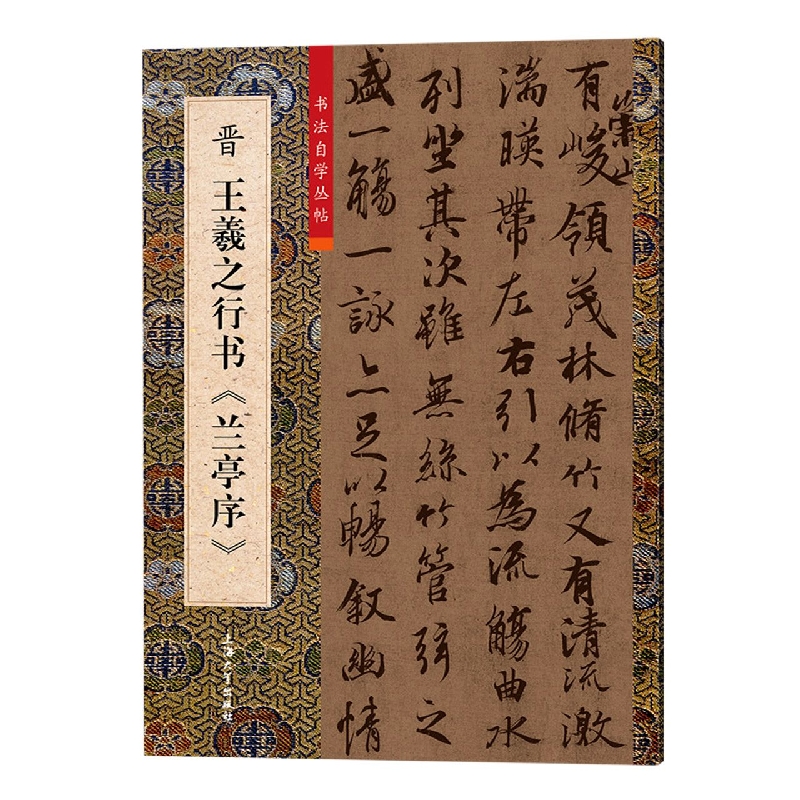 晋 王羲之行书《兰亭序》
上海大学出版社
书法自学丛帖
有崇山峻領茂林脩竹又有清流激
湍暎帶左右引以為流觴曲水
列坐其次雖無絲竹管弦之
盛一觴一詠亦足以暢叙幽情